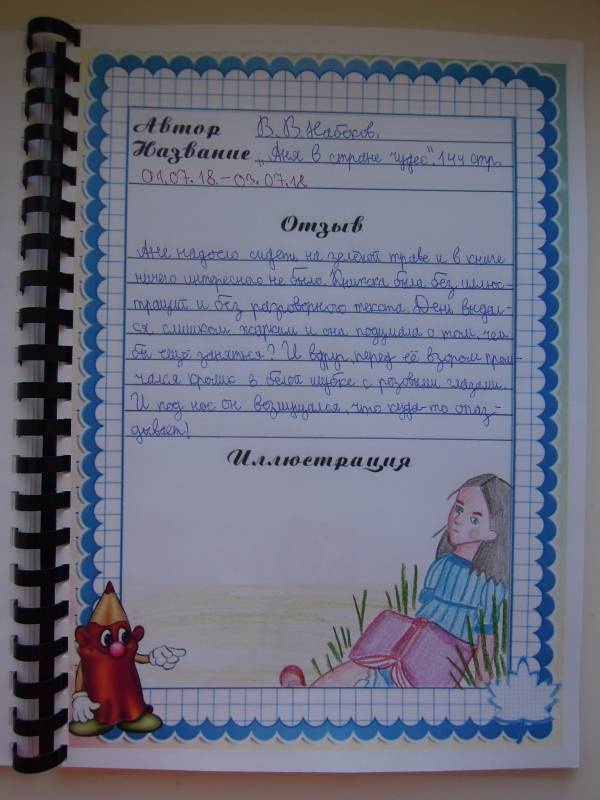 Автор В. В. Набоков.
Название „Аня в стране чудес". 144 стр.
01.07.18.-03.07.18
Отзыв
Ане надоело сидеть на зелёной траве и в книге
ничего интересного не было. Книжка была без иллюс-
траций и без разговорного текста. День выдал-
ся слишком жарким и она подумала о том, чем
бы ещё заняться? И вдруг, перед её взором пром-
чался кролик в белой шубке с розовыми глазами.
И под нос он возмущался, что куда-то опаз-
дывает!
Иллюстрация